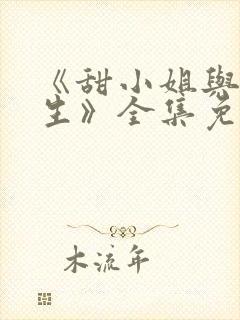 《甜小姐與
生》全集免
木流年